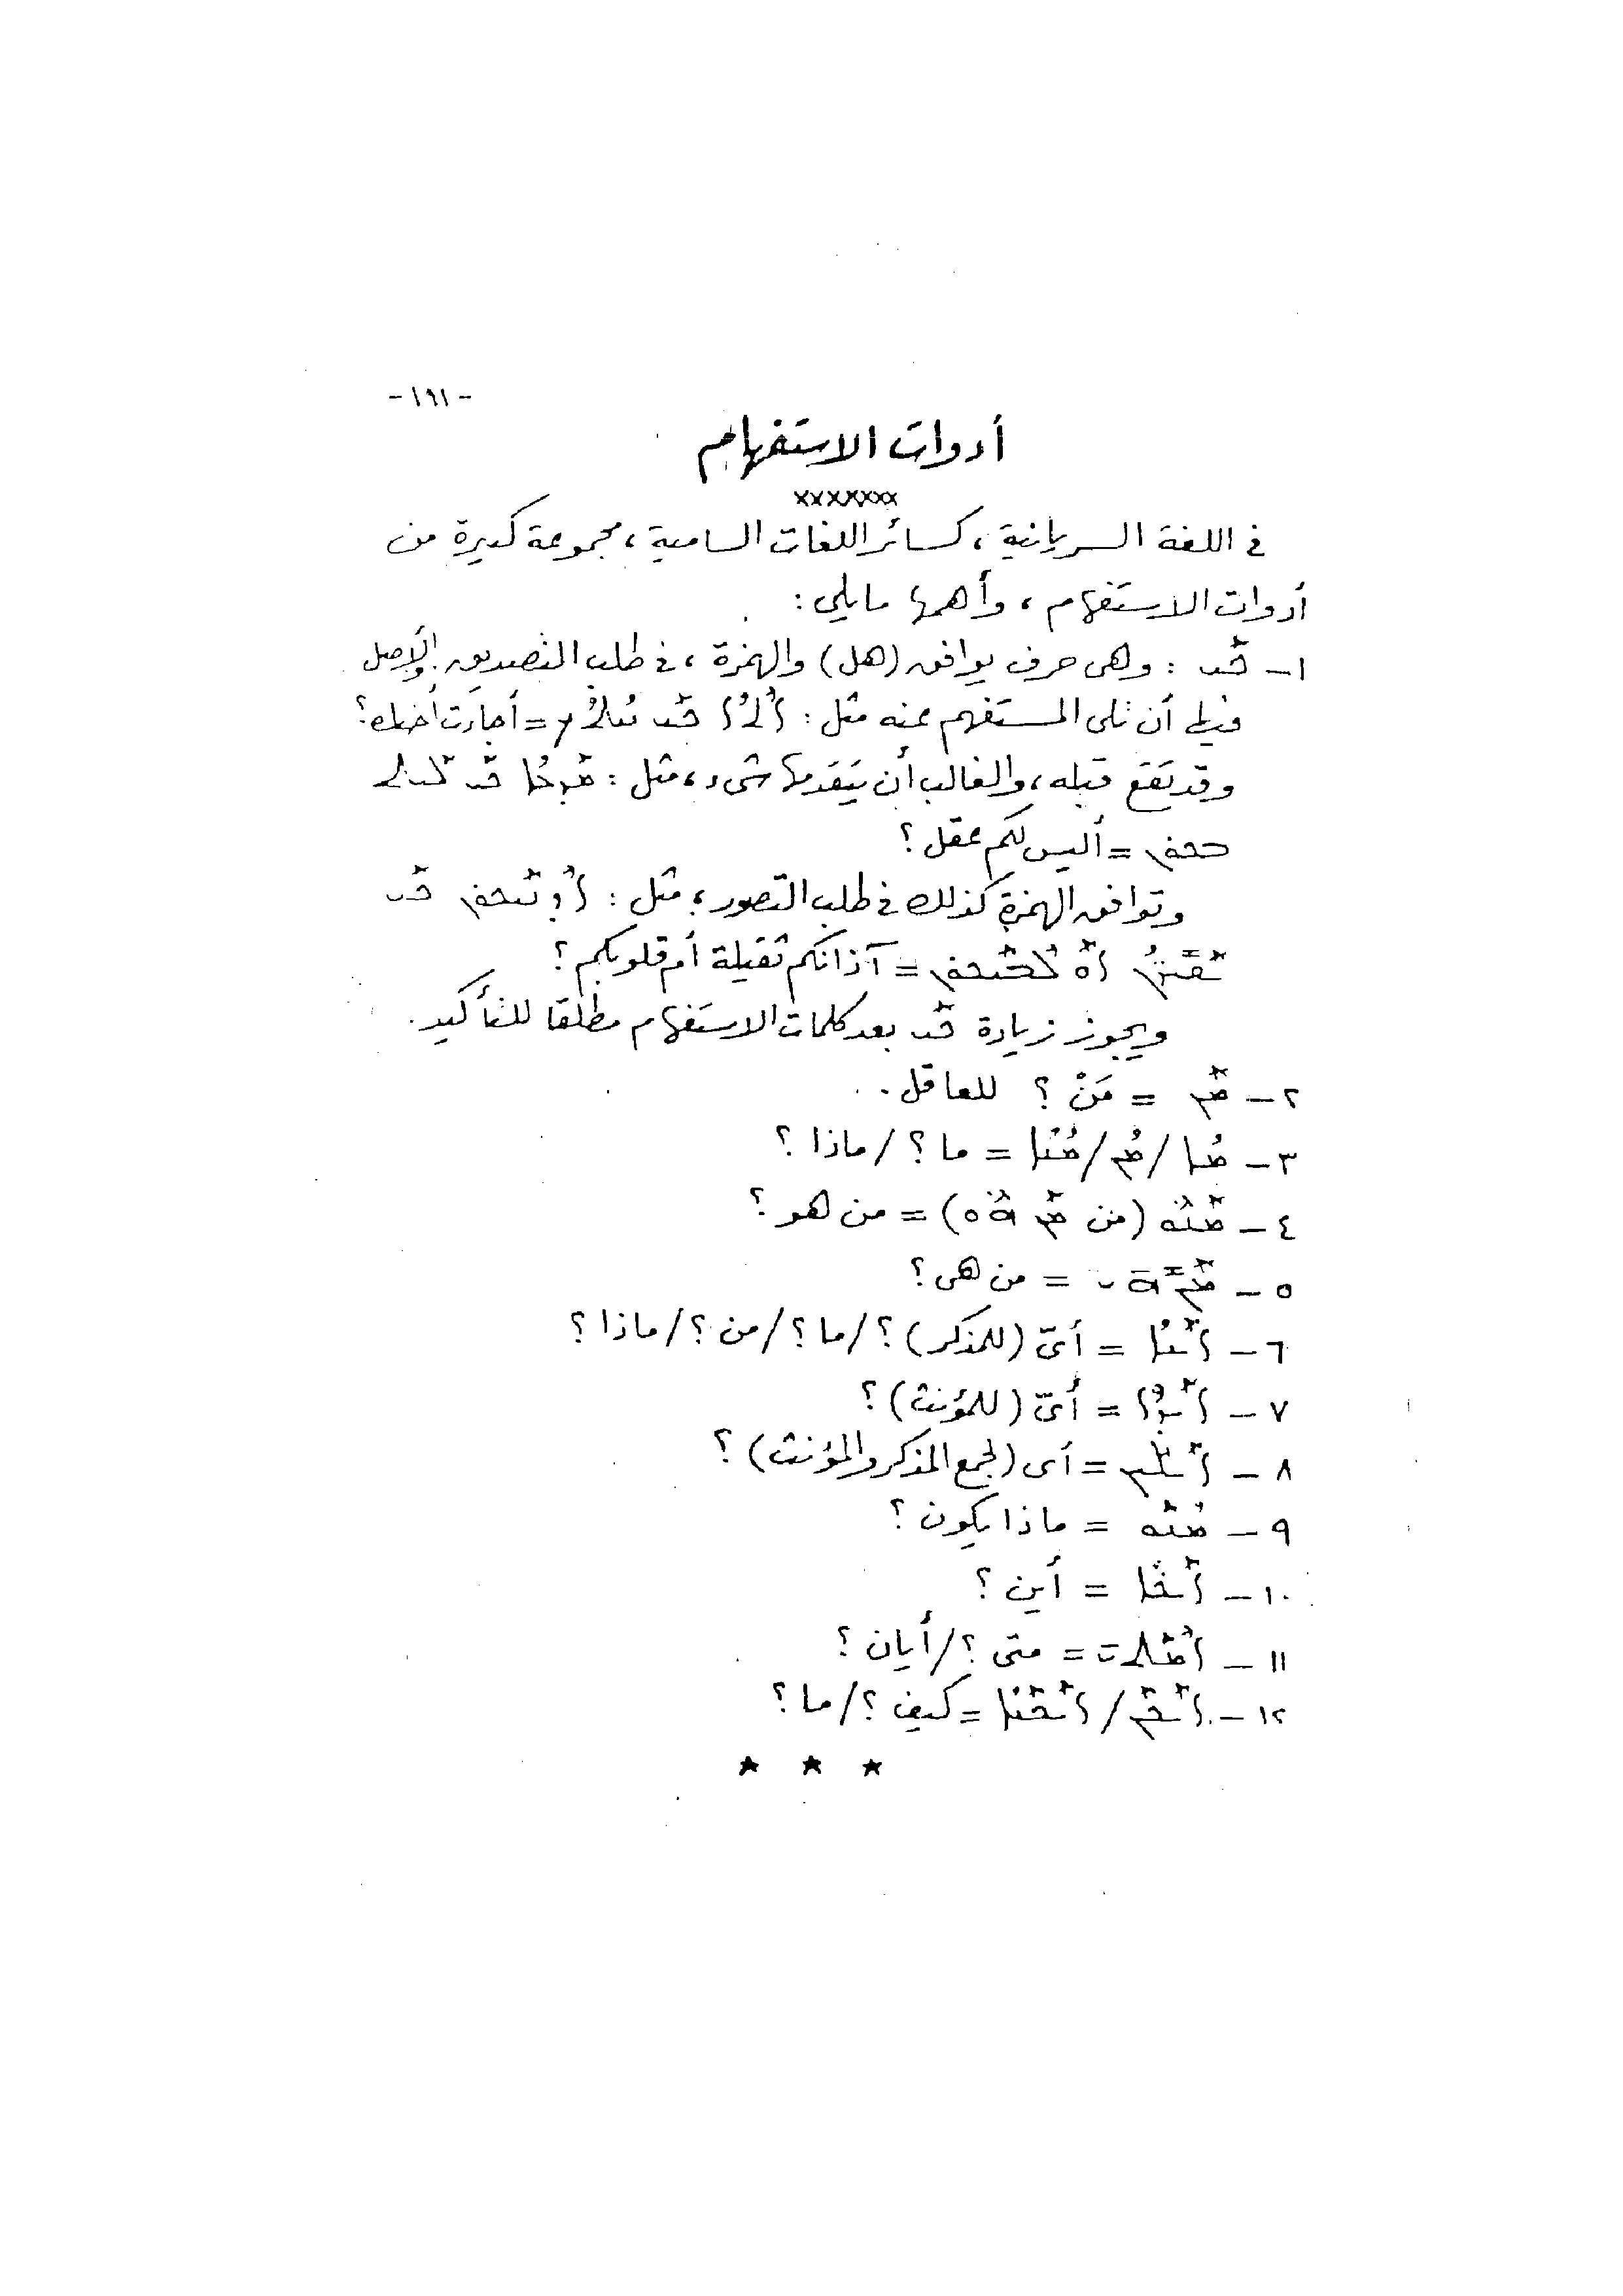 -١٩١-
أدوات الاستفهام
×××××××
فى اللغة السريانية، كسائر اللغات السامية، مجموعة كبيرة من
أدوات الاستفهام، وأهمها مايلى :
١- ܟܰܝ : وهى حرف يوافق (هل) والهمزة، فى طلب التصديق. والأصل
فيها أن تلى المستفهم عنه مثل : ܐܶܬܳܐ ܟܰܝ = أجاءت أختك؟
وقد تقع قبله، والغالب أن يتقدمها شىء، مثل : ܡܰܕܥܳܐ ܟܰܝ ܠܰܝܬ
ܒܟܘܢ = أليس لكم عقل؟
وتوافق الهمزة كذلك فى طلب التصور، مثل : ܟܰܝ
ܐܰܘ = آذانكم ثقيلة أم قلوبكم؟
ويجوز زيادة ܟܰܝ بعد كلمات الاستفهام مطلقا للتأكيد.
٢- ܡܰܢ = مَنْ؟ للعاقل.
٣- ܡܳܐ / ܡܳܢ / ܡܳܢܳܐ = ما؟ / ماذا؟
٤- ܡܰܢܽܘ (من ܡܰܢ ܗܽܘ) = من هو؟
٥- ܡܰܢ ܗܝ = من هى؟
٦- ܐܰܝܢܳܐ = أىّ (للمذكر)؟ / ما؟ / من؟ / ماذا؟
٧- ܐܰܝܕܳܐ = أىّ (للمؤنث)؟
٨- ܐܰܝܠܶܝܢ = أى (لجمع المذكر والمؤنث)؟
٩- ܡܳܢܰܘ = ماذا يكون؟
١٠- ܐܰܝܟܳܐ = أين؟
١١- ܐܶܡܰܬܝ = متى؟ / أيان؟
١٢- ܐܰܝܟܰܢ / ܐܰܝܟܰܢܳܐ = كيف؟ / ما؟
★ ★ ★